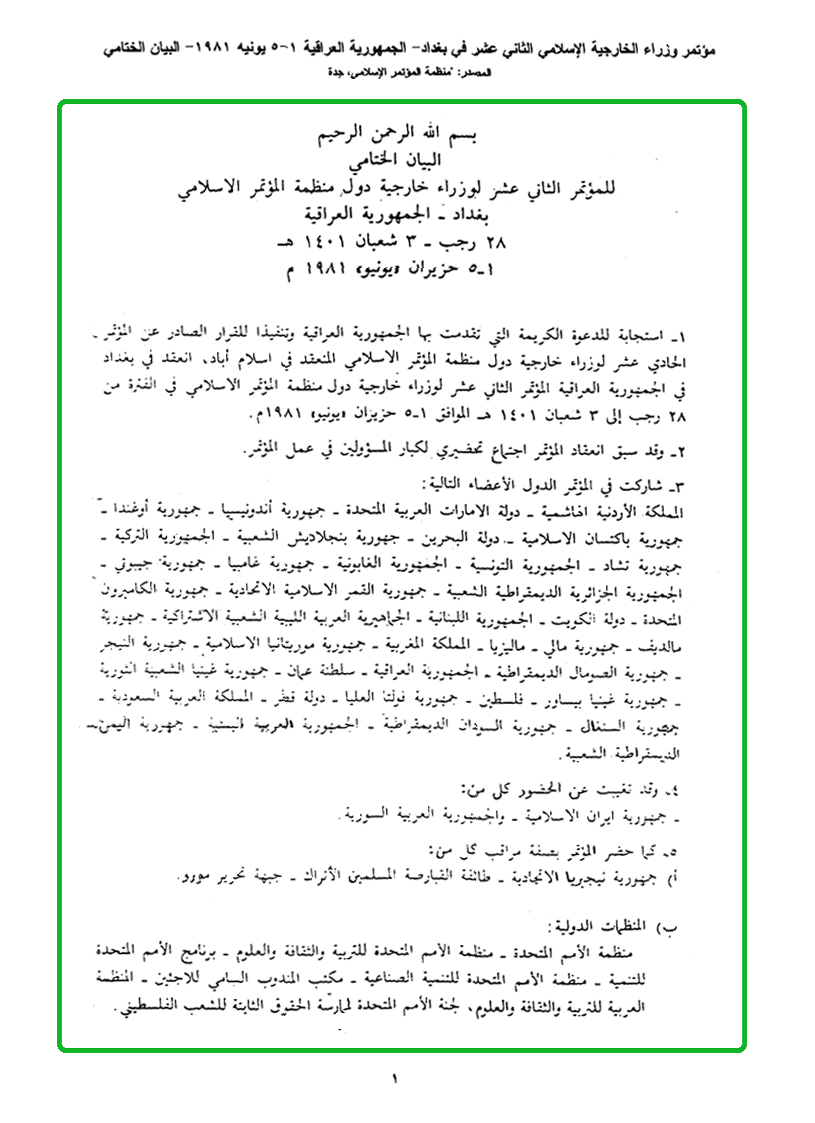 مؤتمر وزراء الخارجية الإسلامي الثاني عشر في بغداد- الجمهورية العراقية ١-٥ يونيه ١٩٨١- البيان الختامي
المصدر: "منظمة المؤتمر الإسلامي، جدة
بسم الله الرحمن الرحيم
البيان الختامي
للمؤتمر الثاني عشر لوزراء خارجية دول منظمة المؤتمر الاسلامي
بغداد ـ الجمهورية العراقية
٢٨ رجب ـ ٣ شعبان ١٤٠١ هـ
١ـ٥ حزيران «يونيو» ١٩٨١ م
١ـ استجابة للدعوة الكريمة التي تقدمت بها الجمهورية العراقية وتنفيذا للقرار الصادر عن المؤتمر ـ
الحادي عشر لوزراء خارجية دول منظمة المؤتمر الاسلامي المنعقد في اسلام أباد، انعقد في بغداد
في الجمهورية العراقية المؤتمر الثاني عشر لوزراء خارجية دول منظمة المؤتمر الاسلامي في الفترة من
٢٨ رجب إلى ٣ شعبان ١٤٠١ هـ الموافق ١ـ٥ حزيران «يونيو» ١٩٨١م.
٢ـ وقد سبق انعقاد المؤتمر اجتماع تحضيري لكبار المسؤولين في عمل المؤتمر.
٣ـ شاركت في المؤتمر الدول الأعضاء التالية:
المملكة الأردنية الهاشمية ـ دولة الامارات العربية المتحدة ـ جمهورية أندونيسيا ـ جمهورية أوغندا ـ
جمهورية باكتسان الاسلامية ـ دولة البحرين ـ جهورية بنجلاديش الشعبية ـ الجمهورية التركية ـ
جمهورية تشاد ـ الجمهورية التونسية ـ الجمهورية الغابونية ـ جمهورية غامبيا ـ جمهورية جيبوتي ـ
الجمهورية الجزائرية الديمقراطية الشعبية ـ جمهورية القمر الاسلامية الاتحادية ـ جمهورية الكاميرون
المتحدة ـ دولة الكويت ـ الجمهورية اللبنانية ـ الجماهيرية العربية الليبية الشعبية الاشتراكية ـ جمهورية
مالديف ـ جمهورية مالي ـ ماليزيا ـ المملكة المغربية ـ جمهورية موريتانيا الاسلامية ـ جمهورية النيجر
ـ جمهورية الصومال الديمقراطية ـ الجمهورية العراقية ـ سلطنة عمان ـ جمهورية غينيا الشعبية الثورية
ـ جمهورية غينيا بيساور ـ فلسطين ـ جمهورية فولتا العليا ـ دولة قطر ـ المملكة العربية السعودية ـ
جمهورية السنغال ـ جمهورية السودان الديمقراطية ـ الجمهورية العربية اليمنية ـ جمهورية اليمن ـ
الديمقراطية الشعبية.
٤ـ وقد تغيبت عن الحضور كل من:
ـ جمهورية ايران الاسلامية ـ والجمهورية العربية السورية.
٥ـ كما حضر المؤتمر بصفة مراقب كل من:
أ) جمهورية نيجيريا الاتحادية ـ طائفة القبارصة المسلمين الأتراك ـ جبهة تحرير مورو.
ب) المنظمات الدولية:
منظمة الأمم المتحدة ـ منظمة الأمم المتحدة للتربية والثقافة والعلوم ـ برنامج الأمم المتحدة
للتنمية ـ منظمة الأمم المتحدة للتنمية الصناعية ـ مكتب المندوب السامي للاجئين ـ المنظمة
العربية للتربية والثقافة والعلوم، لجنة الأمم المتحدة لممارسة الحقوق الثابتة للشعب الفلسطيني.
١